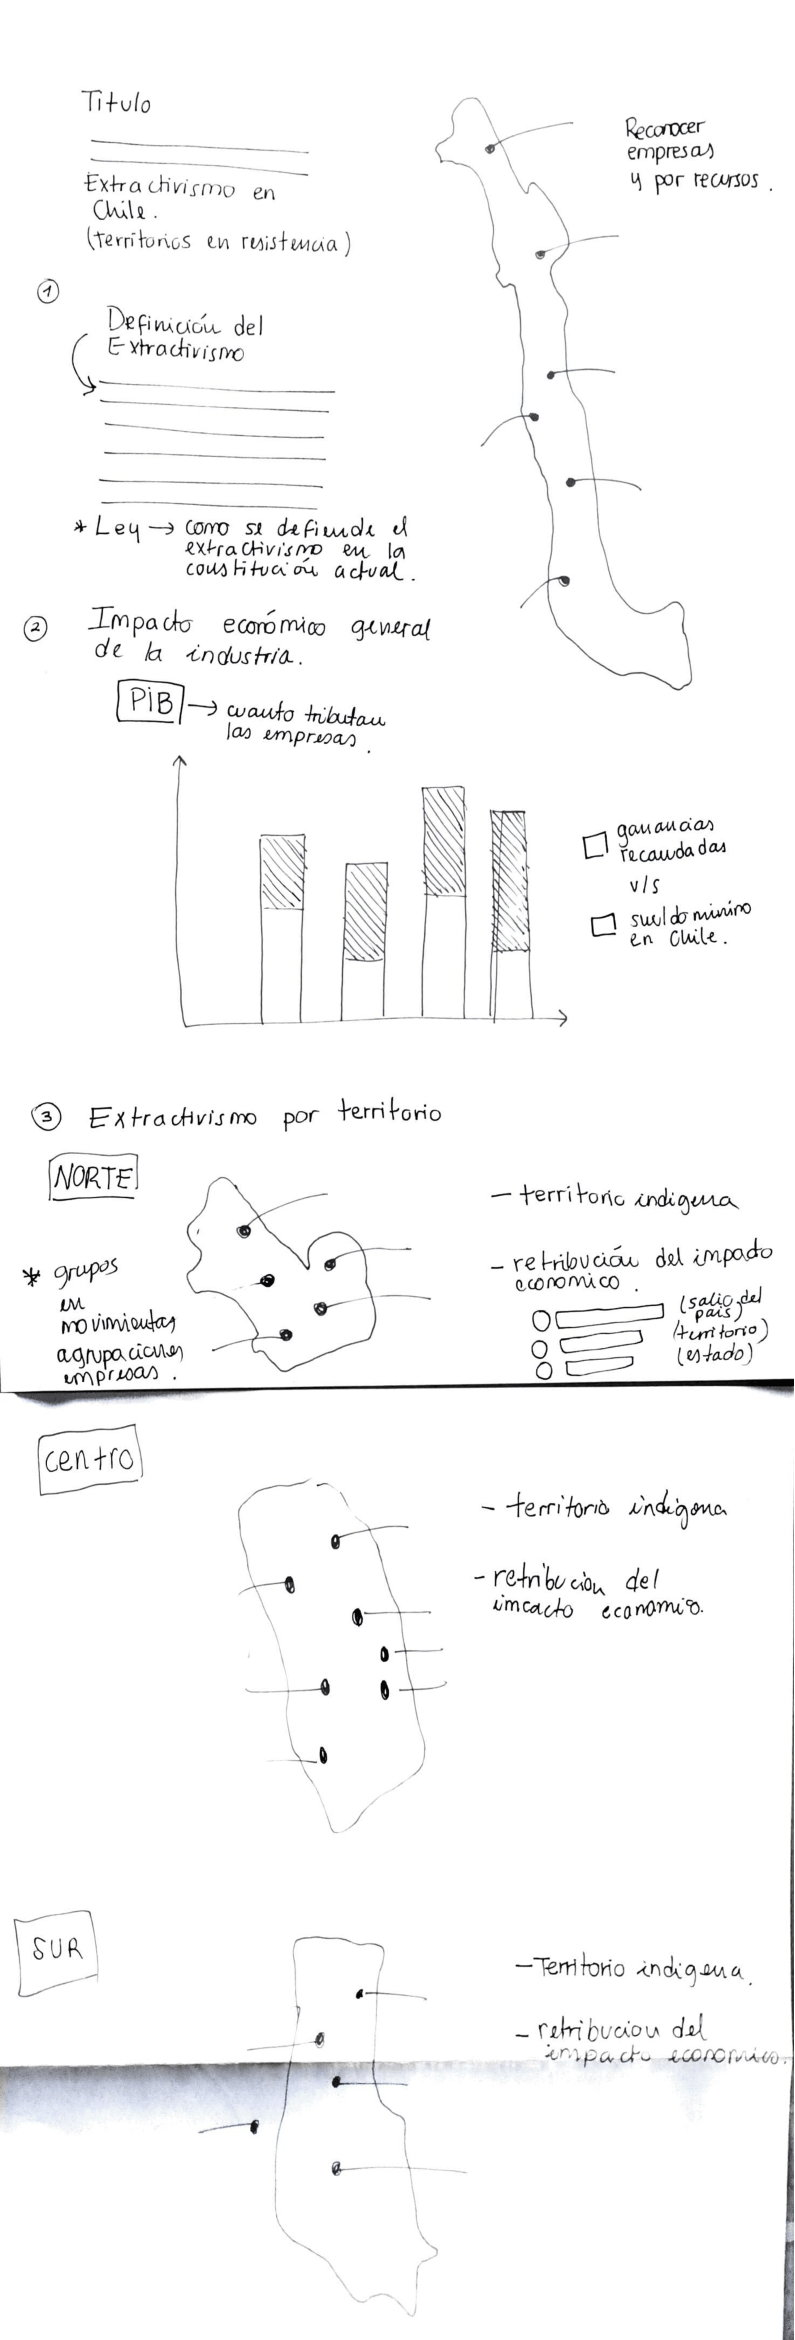 Titulo
Extractivismo en
Chile.
(territorios en resistencia)
Reconocer
empresas
y por recursos.
1
Definición del
Extractivismo
* Ley → como se defiende el
extractivismo en la
constitución actual.
2 Impacto económico general
de la industria.
PIB → cuanto tributan
las empresas.
ganancias
recaudadas
v/s
sueldo minino
en Chile.
3 Extractivismo por territorio
NORTE
* grupos
en
movimientas
agrupaciones
empresas.
- territorio indigena
- retribución del impacto
economico.
(salio del
país)
(territorio)
(estado)
centro
- territorio indígena
- retribución del
imcacto economico.
SUR
- Territorio indigena.
- retribucion del
impacto economico.